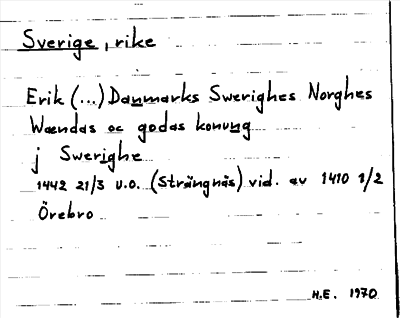 Sverige, rike
Erik (...) Danmarks Swerighes Norghes
Wændas oc godas konung
j Swerighe
1442 21/3 u.o. (Strängnäs) vid. av 1410 1/2
Örebro
H.E. 1970